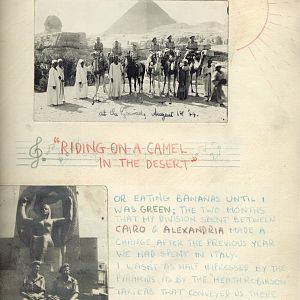 at the Pyramids, August 1944.
"RIDING ON A CAMEL
IN THE DESERT"
OR EATING BANANAS UNTIL I
WAS GREEN; THE TWO MONTHS
THAT MY DIVISION SPENT BETWEEN
CAIRO & ALEXANDRIA MADE A
CHANGE AFTER THE PREVIOUS YEAR
WE HAD SPENT IN ITALY.
I WASN'T AS HALF IMPRESSED BY THE
PYRAMIDS AS BY THE HEATH ROBINSON
TAXI CAB THAT CONVEYED US THERE